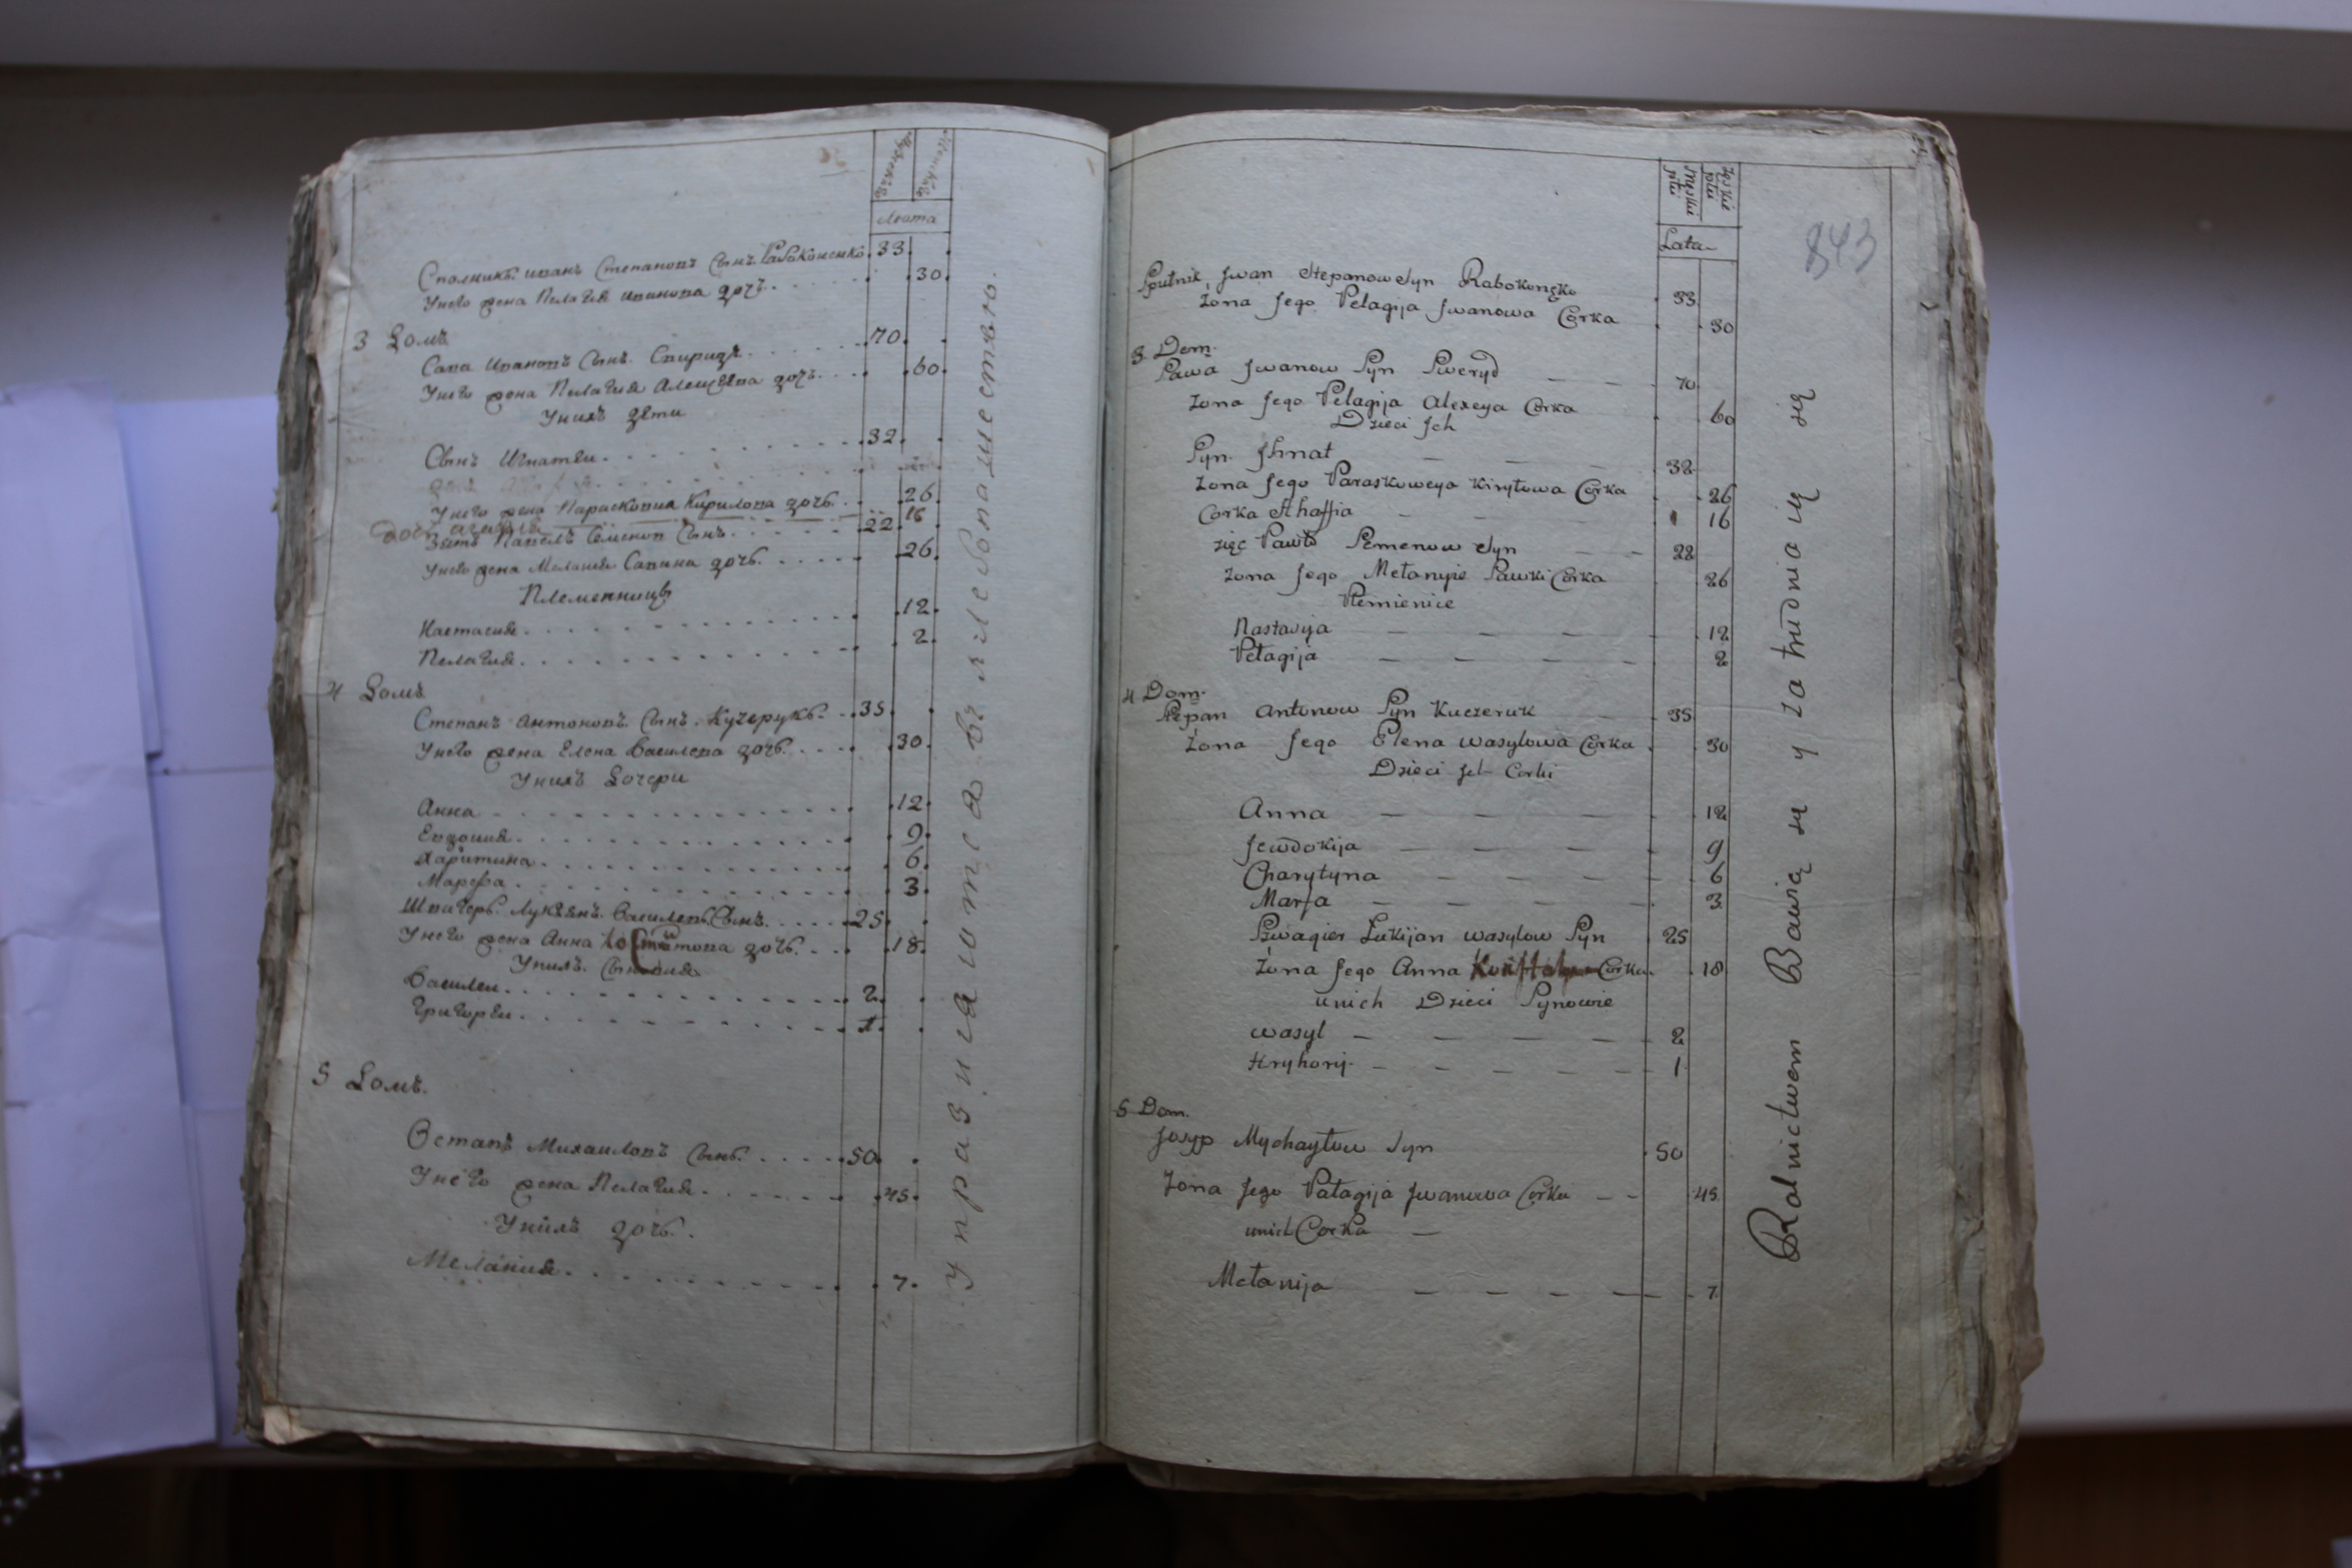 Лѣта
Сполникъ иванъ Степановъ Сынъ Рабоконенко 33
Унего жена Пелагия иванова дочь 30
3 Домъ
Сава Ивановъ Сынъ Свиридъ 70
Унего жена Пелагия Алецѣева дочь 60
Унихъ дети
Сынъ Игнатеи 32
Унего жена Параскопия Кирилова дочь 26
дочь 16
Зять Павелъ Семенов Сынъ 22
Унего жена Мелания Савина дочь 26
Племенницы
Настасия 12
Пелагия 2
4 Домъ
Степанъ Антоновъ Сынъ Кучерукъ 35
Унего жена Елена Василева дочь 30
Унихъ Дочери
Анна 12
Евдокия 9
Харитина 6
Марѳа 3
Швагеръ Лукъянъ Василевъ Сынъ 25
Унего жена Анна дочь 18
Унихъ Сыновия
Василеи 2
Григореи 1
5 Домъ
Остапъ Михаиловъ Сынъ 50
Унего жена Пелагия 45
Унихъ дочь
Мелания 7
Упражняются въ хлебопашестве
843
Męskiei płci
Żeskiei płci
Lata
Spułnik Jwan Stepanow Syn Rabokonęko 33
Zona Jego Pelagija Jwanowa Corka 30
3 Dom
Sawa Jwanow Syn Sweryd 70
Zona Jego Pelagija Alexeya Corka 60
Dzieci Jch
Syn Jhnat 32
Zona Jego Paraskoweya Kiryłowa Corka 26
Corka Ahaffia 16
zięc Pawło Semenow Syn 22
Zona Jego Mełanyia Sawki Corka 26
Plemienice
Nastasyja 12
Pelagija 2
4 Dom
Stepan Antonow Syn Kuczeruk 35
Zona Jego Elena wasylowa Corka 30
Dzieci Jch Corki
Anna 12
Jewdokija 9
Charytyna 6
Marfa 3
Szwagier Łukijan wasylow Syn 25
Zona Jego Anna Corka 18
unich Dzieci Synowie
wasyl 2
Hryhorij 1
5 Dom
Josyp Mychayłow Syn 50
Zona Jego Pałagija Jwanowa Corka 45
unich Corka
Mełanija 7
Rolnictwem Bawią się y zatrudniaią się